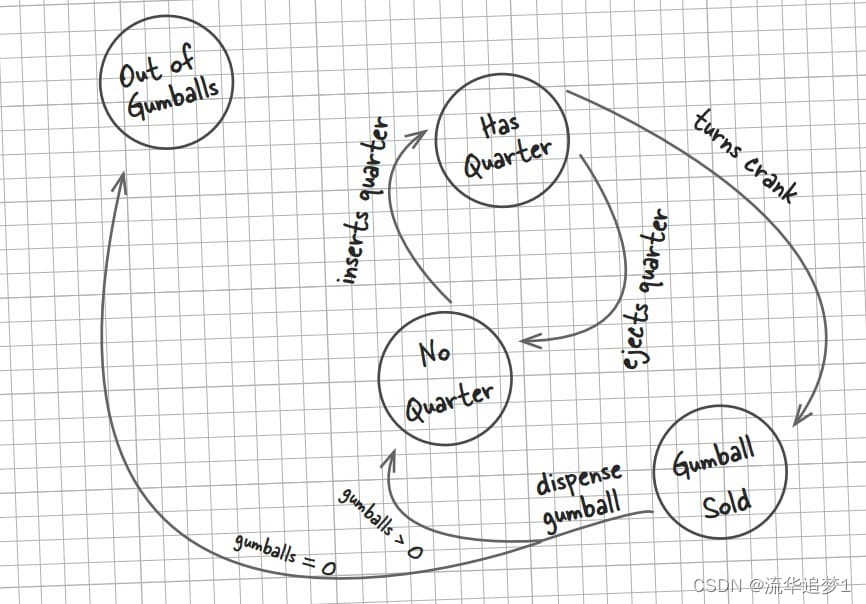 Out of
Gumballs
Has
Quarter
turns crank
inserts quarter
ejects quarter
No
Quarter
Gumball
Sold
dispense
gumball
gumballs > 0
gumballs = 0
CSDN @流华追梦1